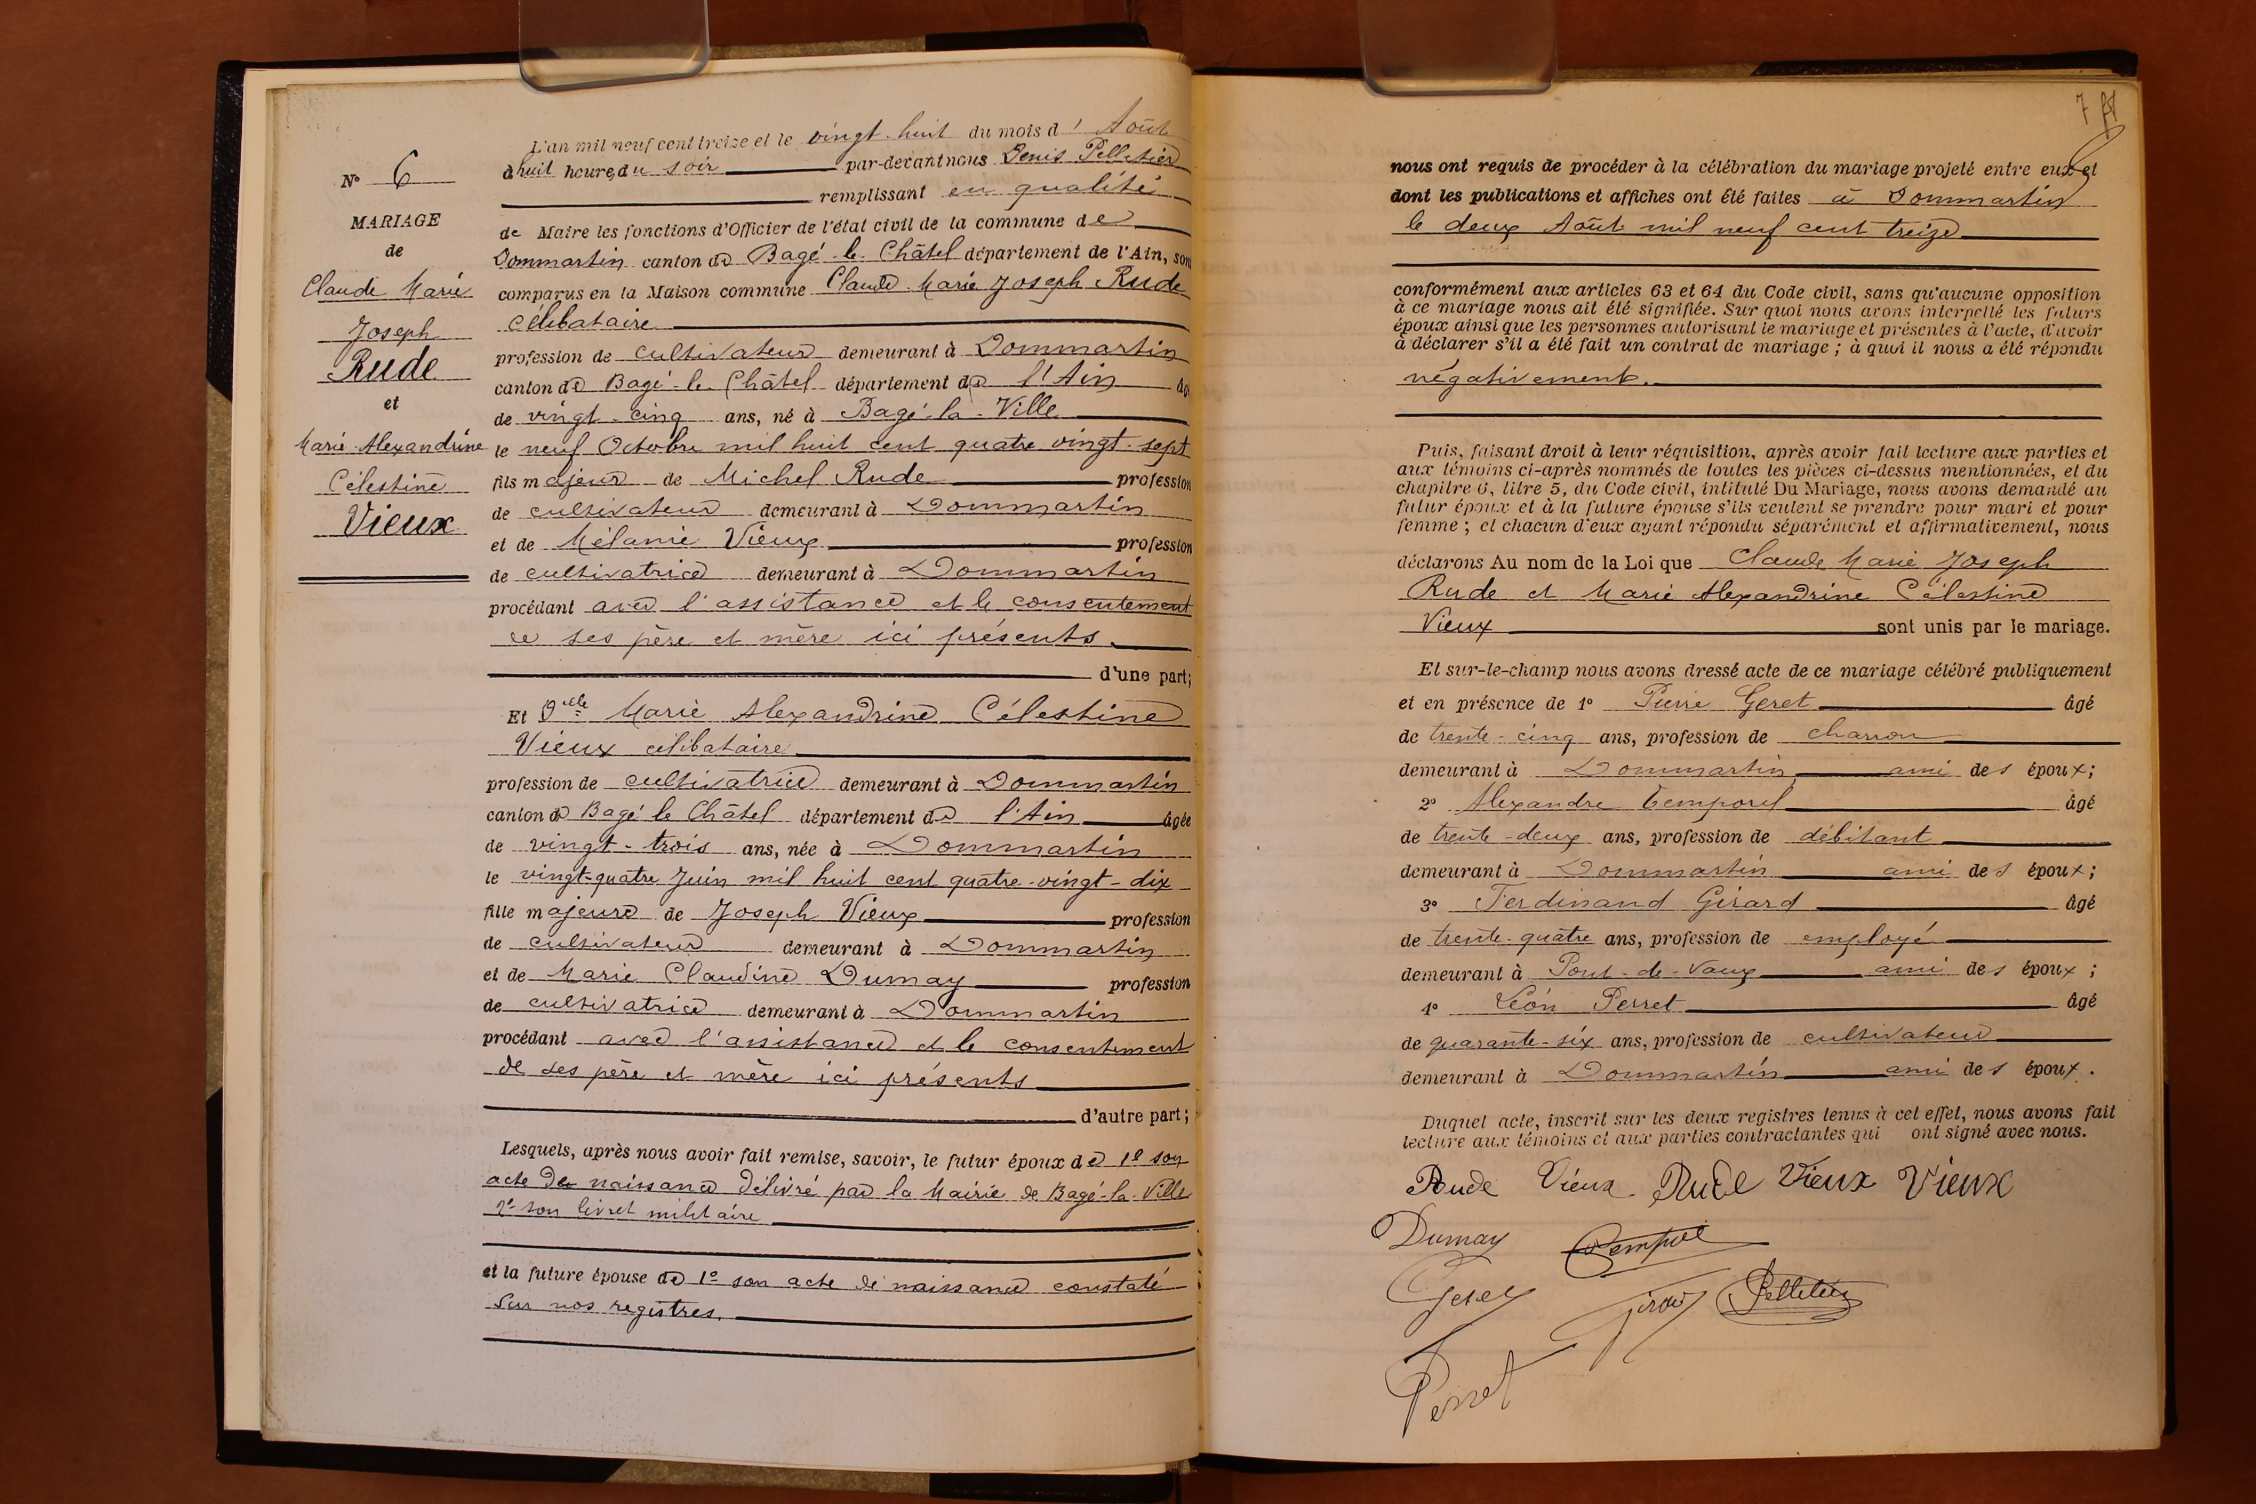 N° 6
MARIAGE
de
Claude Marie
Joseph
Rude
et
Marie Alexandrine
Célestine
Vieux
L'an mil neuf cent treize et le vingt-huit du mois d' Août
à huit heures du soir par-devant nous Denis Pelletier
remplissant en qualité
de Maire les fonctions d'Officier de l'état civil de la commune de
Dommartin canton de Bagé-le-Châtel département de l'Ain, sont
comparus en la Maison commune Claude Marie Joseph Rude
célibataire
profession de cultivateur demeurant à Dommartin
canton de Bagé-le-Châtel département de l'Ain âgé
de vingt-cinq ans, né à Bagé-la-Ville
le neuf Octobre mil huit cent quatre vingt-sept
fils majeur de Michel Rude profession
de cultivateur demeurant à Dommartin
et de Mélanie Vieux profession
de cultivatrice demeurant à Dommartin
procédant avec l'assistance et le consentement
de ses père et mère ici présents.
d'une part;
Et Dlle Marie Alexandrine Célestine
Vieux célibataire
profession de cultivatrice demeurant à Dommartin
canton de Bagé le Châtel département de l'Ain âgée
de vingt-trois ans, née à Dommartin
le vingt-quatre Juin mil huit cent quatre-vingt-dix
fille majeure de Joseph Vieux profession
de cultivateur demeurant à Dommartin
et de Marie Claudine Dumay profession
de cultivatrice demeurant à Dommartin
procédant avec l'assistance et le consentement
de ses père et mère ici présents
d'autre part;
Lesquels, après nous avoir fait remise, savoir, le futur époux de 1° son
acte de naissance délivré par la Mairie de Bagé-la-Ville
2° son livret militaire
et la future épouse de 1° son acte de naissance constaté
sur nos registres.
7
nous ont requis de procéder à la célébration du mariage projeté entre eux et
dont les publications et affiches ont été faites à Dommartin
le deux Août mil neuf cent treize
conformément aux articles 63 et 64 du Code civil, sans qu'aucune opposition
à ce mariage nous ait été signifiée. Sur quoi nous avons interpellé les futurs
époux ainsi que les personnes autorisant le mariage et présentes à l'acte, d'avoir
à déclarer s'il a été fait un contrat de mariage ; à quoi il nous a été répondu
négativement.
Puis, faisant droit à leur réquisition, après avoir fait lecture aux parties et
aux témoins ci-après nommés de toutes les pièces ci-dessus mentionnées, et du
chapitre 6, titre 5, du Code civil, intitulé Du Mariage, nous avons demandé au
futur époux et à la future épouse s'ils veulent se prendre pour mari et pour
femme ; et chacun d'eux ayant répondu séparément et affirmativement, nous
déclarons Au nom de la Loi que Claude Marie Joseph
Rude et Marie Alexandrine Célestine
Vieux sont unis par le mariage.
Et sur-le-champ nous avons dressé acte de ce mariage célébré publiquement
et en présence de 1° Pierre Geret âgé
de trente-cinq ans, profession de charron
demeurant à Dommartin ami des époux;
2° Alexandre Temporel âgé
de trente-deux ans, profession de débitant
demeurant à Dommartin ami des époux;
3° Ferdinand Girard âgé
de trente-quatre ans, profession de employé
demeurant à Pont-de-Vaux ami des époux;
4° Léon Perret âgé
de quarante-six ans, profession de cultivateur
demeurant à Dommartin ami des époux.
Duquel acte, inscrit sur les deux registres tenus à cet effet, nous avons fait
lecture aux témoins et aux parties contractantes qui ont signé avec nous.
Rude Vieux Rude Vieux Vieux
Dumay
Geret Pelletier
Perret